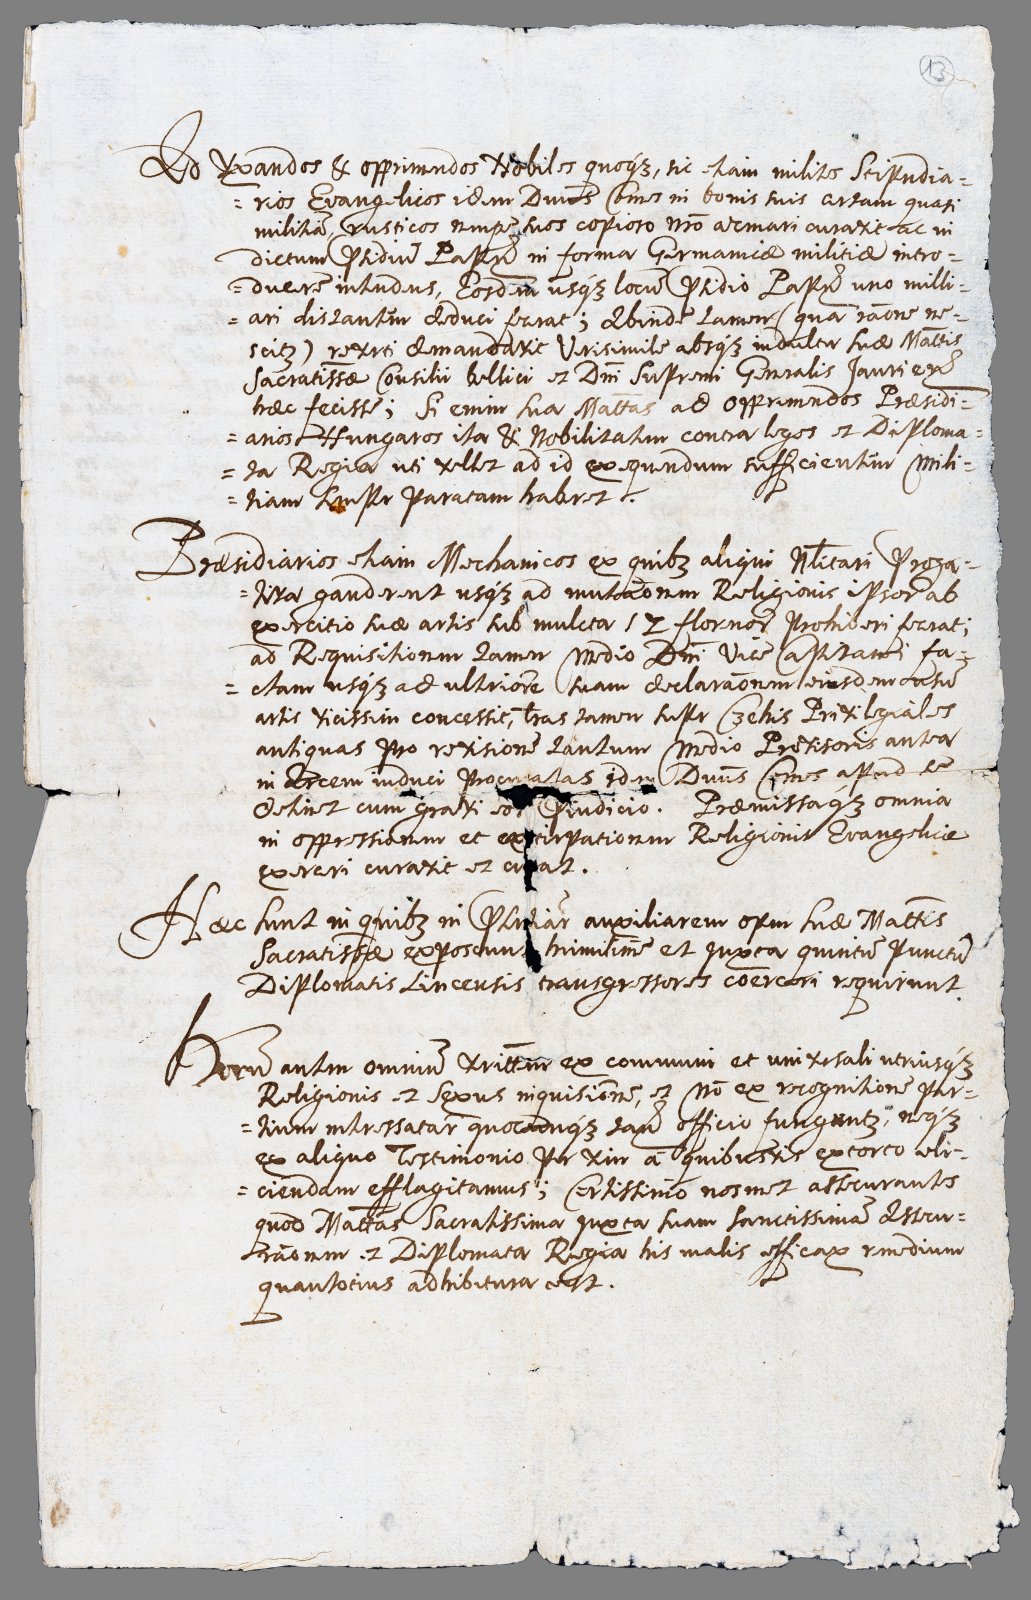 13
Ad vexandos & opprimendos Nobiles quoqʒ, sic etiam milites Stipendia=
=rios Evangelicos idem Dnus Comes in bonis suis certam quasi
militiã, rusticos nempe suos copioso nrõ armari curavit ac in
dictum Pŝidiũ Papeñ in forma Germanicæ militiæ intro=
=ducere intendens, Eosdem usqʒ locũ Pŝidio Papeñ uno milli=
=ari distantem deduci fecerat; abinde tamen (quâ rãone ne=
scitʒ) reverti demandavit Verisimile absqʒ indultu suæ Mattis
Sacratissæ Consilii bellici et Dni Supremi Generalis Jaurieñ
hæc fecisse; Si enim sua Mattas ad opprimendos Præsidi=
=arios Hungaros ita & Nobilitatem contra leges et Diploma=
=ta Regia uti vellet ad id exequendum sufficientem Mili=
=tiam semper paratam haberet.
Præsidiarios etiam Mechanicos ex quibʒ aliqui Nlitari Prero̷ga=
=tiva gauderent usqʒ ad mutãonem Religionis ipsor ab
exercitio suæ artis sub mulcta 12 flornor Prohiberi fecerat;
ad Requisitionem tamen Medio Dni Vice Capitanei fa=
=ctam usqʒ ad ulteriorẽ suam declarãonem eiusdem usũ
artis vicissim concessit, lras tamen super Czehis Privilegiales
antiquas pro revisionẽ tantum Medio Provisoris antea
in Arcem induci procuratas idem Dnus Comes apud se
detinet cum gravi eor Piudicio. Præmissaqʒ omnia
in oppressionem et extirpationem Religionis Evangelicæ
exerceri curavit et curat.
Hæc sunt in quibʒ in Pŝentiar auxiliarem opem suæ Mattis
Sacratissæ exposcunt humilime et juxta quintũ Punctũ
Diplomatis Lincensis transgressores coerceri requirunt.
Horũ autem omniũ veritãtem ex communi et universali utriusqʒ
Religionis et Sexus inquisionẽ, et Nõ ex recognitione Per=
=tium interessatar quocunqʒ tañ officio fungantʒ, neqʒ
ex aliquo Testimonio per vim â quibusvis extorto eli=
=ciendam efflagitamus; Certissimo nosmet assecurantes
quod Mattas Sacratissima juxta suam sanctissimã Assecu=
=rãonem et Diplomata Regia his malis efficax remedium
quantocius adhibitura est.